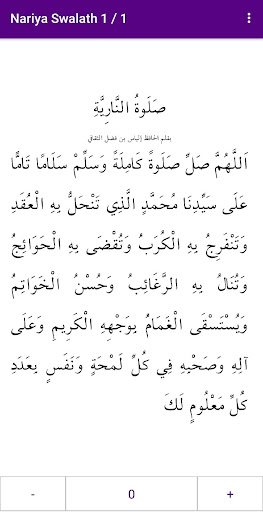 Nariya Swalath 1 / 1
صَلَوةُ النَّارِيَّةِ
بقلم الحافظ إلياس بن فضل الثقافي
اَللَّهُمَّ صَلِّ صَلَوةً كَامِلَةً وَسَلِّمْ سَلَامًا تَامًّا
عَلَى سَيِّدِنَا مُحَمَّدٍ الَّذِي تَنْحَلُّ بِهِ الْعُقَدِ
وَتَنْفَرِجُ بِهِ الْكُرَبُ وَتُقْضَى بِهِ الْحَوَائِجُ
وَتُنَالُ بِهِ الرَّغَائِبُ وَحُسْنُ الْخَوَاتِمِ
وَيُسْتَسْقَى الْغَمَامُ بِوَجْهِهِ الْكَرِيمِ وَعَلَى
آلِهِ وَصَحْبِهِ فِي كُلِّ لَمْحَةٍ وَنَفَسٍ بِعَدَدِ
كُلِّ مَعْلُومٍ لَكَ
- 0 +